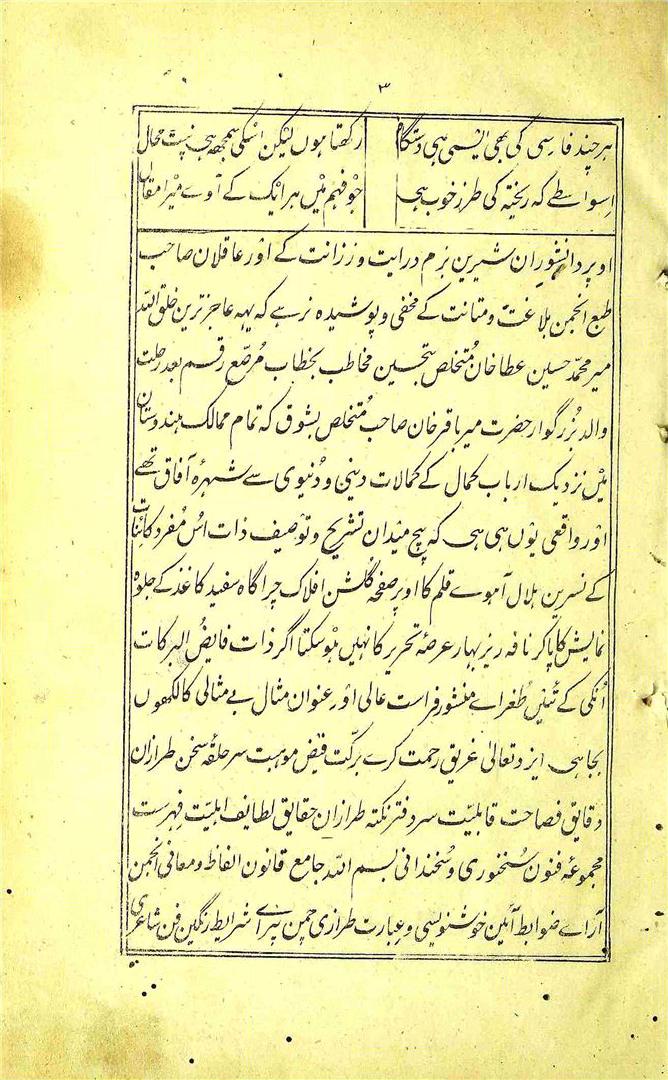 ۳
ہر چند فارسی کی بھی ایسی ہی دستگاہ
رکھتا ہوں لیکن اسکی سمجھ ہی نپٹ محال
اسواسطے کہ ریختہ کی طرز خوب ہی
جو فہم میں ہر ایک کے آوے میرا مقال
اوپر دانشوران شیرین بزم درایت و رزانت کے اور عاقلان صاحب
طبع انجمن بلاغت و متانت کے مخفی و پوشیدہ نرہے کہ یہہ عاجز ترین خلق اللہ
میر محمد حسین عطا خان متخلص بتحسین مخاطب بخطاب مرصّع رقم بعد رحلت
والد بزرگوار حضرت میر باقر خان صاحب متخلص بشوق کہ تمام ممالک ہندوستان
میں نزدیک ارباب کمال کے کمالات دینی و دنیوی سے شہرۂ آفاق تھے
اور واقعی یوں ہی ہی کہ بیچ میدان تشریح و توصیف ذات اُس مفرد کائنات
کے نسرین ہلال آہوے قلم کا اوپر صفحہ گلشن افلاک چراگاہ سفید کاغذ کے جلوہ
نمایش کا پاکر نافہ ریز بہار عرصۂ تحریر کا نہیں ہوسکتا اگر ذات فایض البرکات
اُنکی کے تئیں طغراے منشور فراست عالی اور عنوان مثال بے مثالی کا لکھوں
بجا ہی ایزد تعالیٰ غریق رحمت کرے برکت فیض موہبت سر حلقۂ سخن طرازان
دقایق فصاحت قابلیّت سر دفتر نکتہ طرازان حقایق لطایف اہلیّت فہرست
مجموعۂ فنون سُخنوری و سُخندانی بسم اللہ جامع قانون الفاظ و معانی انجمن
آراے ضوابط آئین خوشنویسی و عبارت طرازی چمن پیراے شرایط رنگین فن شاعری